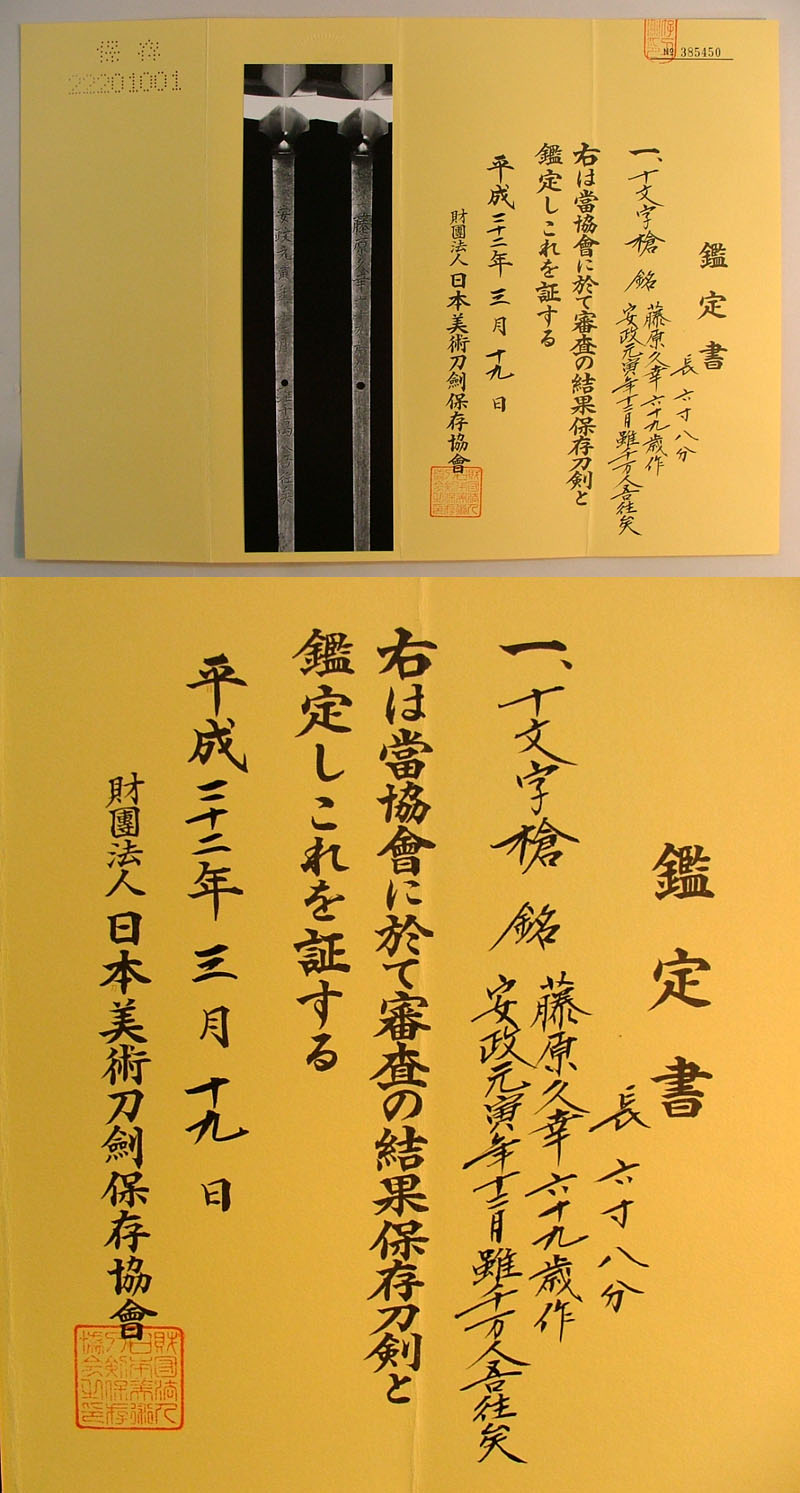 保存
22201001
No 385450
鑑定書
長 六寸八分
一、十文字槍 銘 藤原久幸六十九歳作
安政元寅年十二月雖千万人吾往矣
右は當協會に於て審査の結果保存刀剣と
鑑定しこれを証する
平成二十二年 三月 十九日
財團法人日本美術刀劍保存協會
鑑定書
長 六寸八分
一、十文字槍 銘 藤原久幸六十九歳作
安政元寅年十二月雖千万人吾往矣
右は當協會に於て審査の結果保存刀剣と
鑑定しこれを証する
平成二十二年 三月 十九日
財團法人日本美術刀劍保存協會